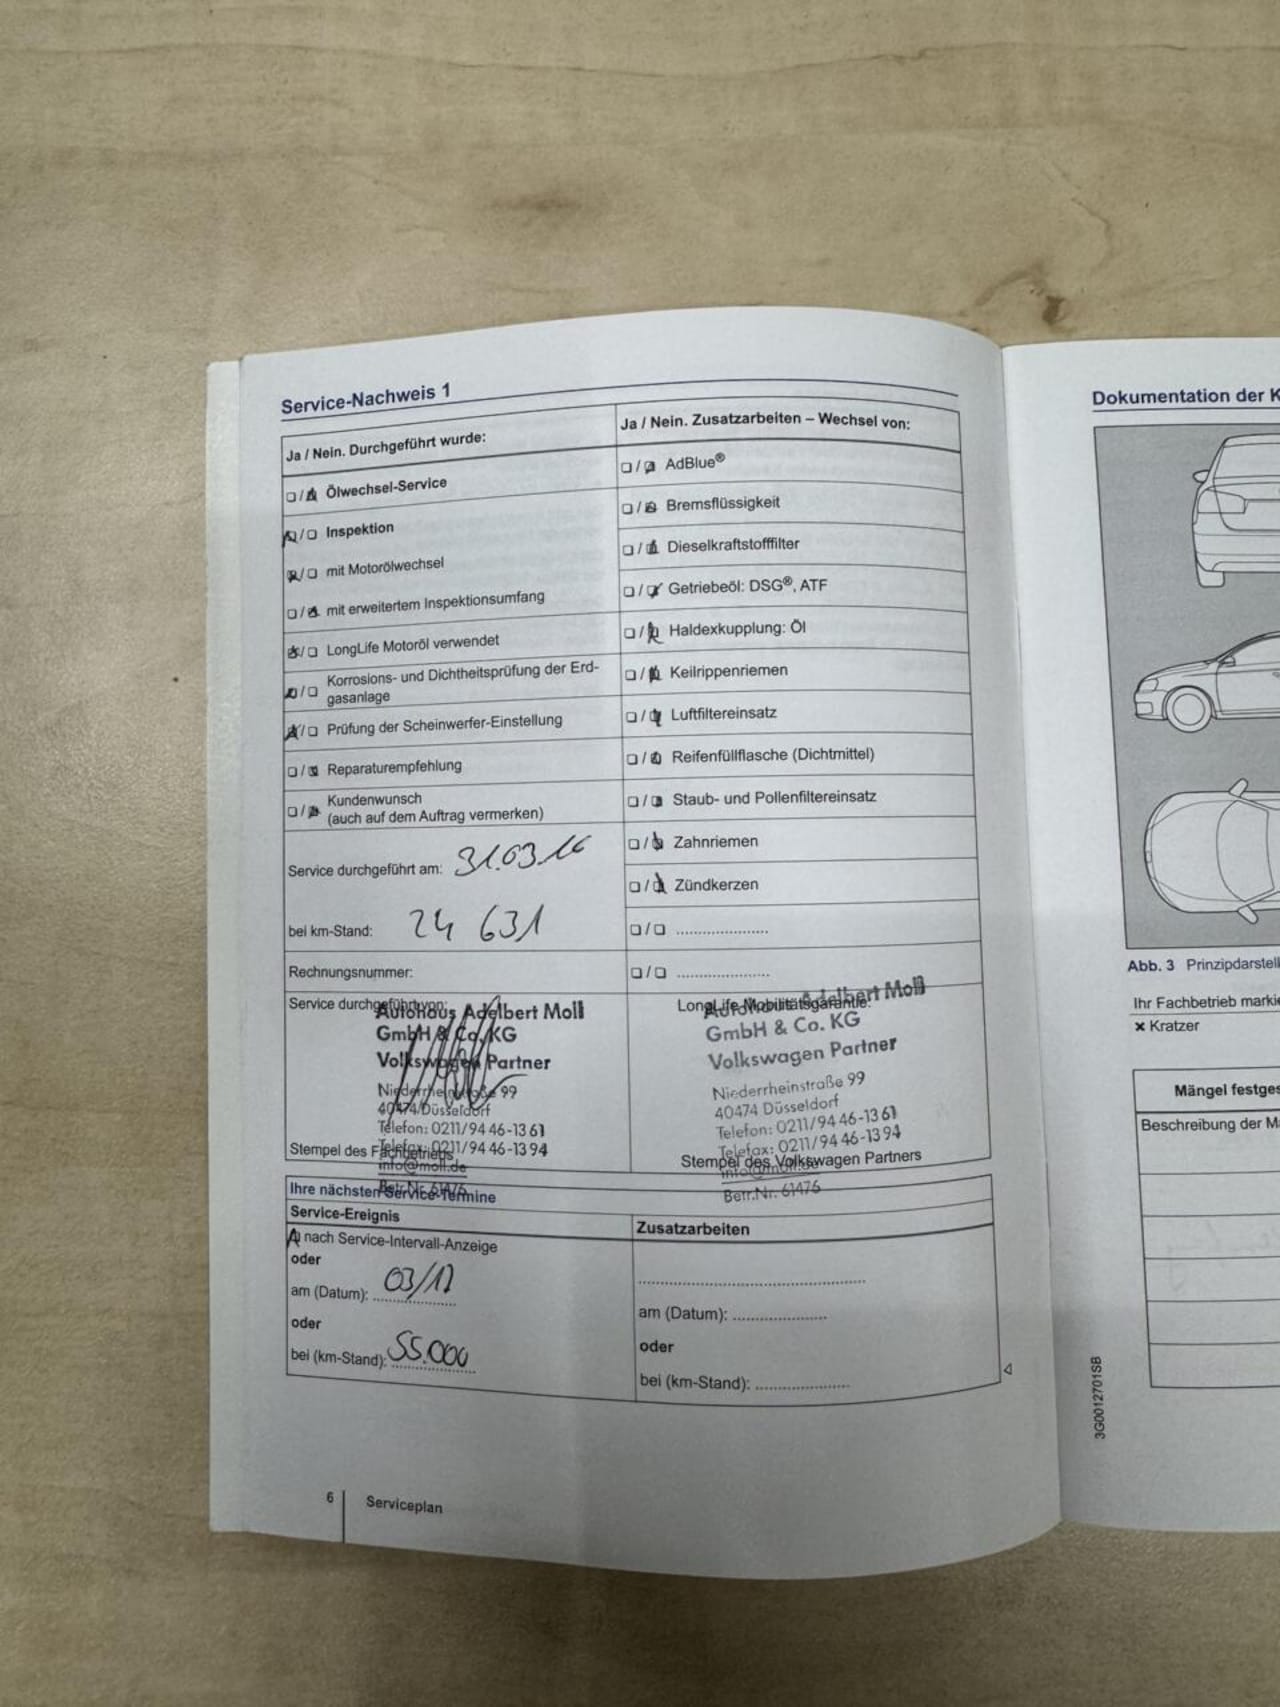 Service-Nachweis 1
Ja / Nein. Durchgeführt wurde:
❏/❏ Ölwechsel-Service
❏/❏ Inspektion
❏/❏ mit Motorölwechsel
❏/❏ mit erweitertem Inspektionsumfang
❏/❏ LongLife Motoröl verwendet
❏/❏ Korrosions- und Dichtheitsprüfung der Erd-
gasanlage
❏/❏ Prüfung der Scheinwerfer-Einstellung
❏/❏ Reparaturempfehlung
❏/❏ Kundenwunsch
(auch auf dem Auftrag vermerken)
Service durchgeführt am: 31.03.16
bei km-Stand: 24 631
Rechnungsnummer:
Service durchgeführt von:
Autohaus Adelbert Moll
GmbH & Co. KG
Volkswagen Partner
Niederrheinstraße 99
40474 Düsseldorf
Telefon: 0211/94 46-13 61
Telefax: 0211/94 46-13 94
info@moll.de
Betr.Nr. 61476
Stempel des Fachbetriebs
Ja / Nein. Zusatzarbeiten – Wechsel von:
❏/❏ AdBlue®
❏/❏ Bremsflüssigkeit
❏/❏ Dieselkraftstofffilter
❏/❏ Getriebeöl: DSG®, ATF
❏/❏ Haldexkupplung: Öl
❏/❏ Keilrippenriemen
❏/❏ Luftfiltereinsatz
❏/❏ Reifenfüllflasche (Dichtmittel)
❏/❏ Staub- und Pollenfiltereinsatz
❏/❏ Zahnriemen
❏/❏ Zündkerzen
❏/❏ .....................
❏/❏ .....................
LongLife-Mobilitätsgarantie:
Autohaus Adelbert Moll
GmbH & Co. KG
Volkswagen Partner
Niederrheinstraße 99
40474 Düsseldorf
Telefon: 0211/94 46-13 61
Telefax: 0211/94 46-13 94
info@moll.de
Betr.Nr. 61476
Stempel des Volkswagen Partners
Ihre nächsten Service-Termine
Service-Ereignis
❏ nach Service-Intervall-Anzeige
oder
am (Datum): 03/17
oder
bei (km-Stand): 55.000
Zusatzarbeiten
am (Datum): .....................
oder
bei (km-Stand): .....................
6 Serviceplan
Dokumentation der K
Abb. 3 Prinzipdarstell
Ihr Fachbetrieb markie
× Kratzer
Mängel festges
Beschreibung der Mä
3G0012701SB